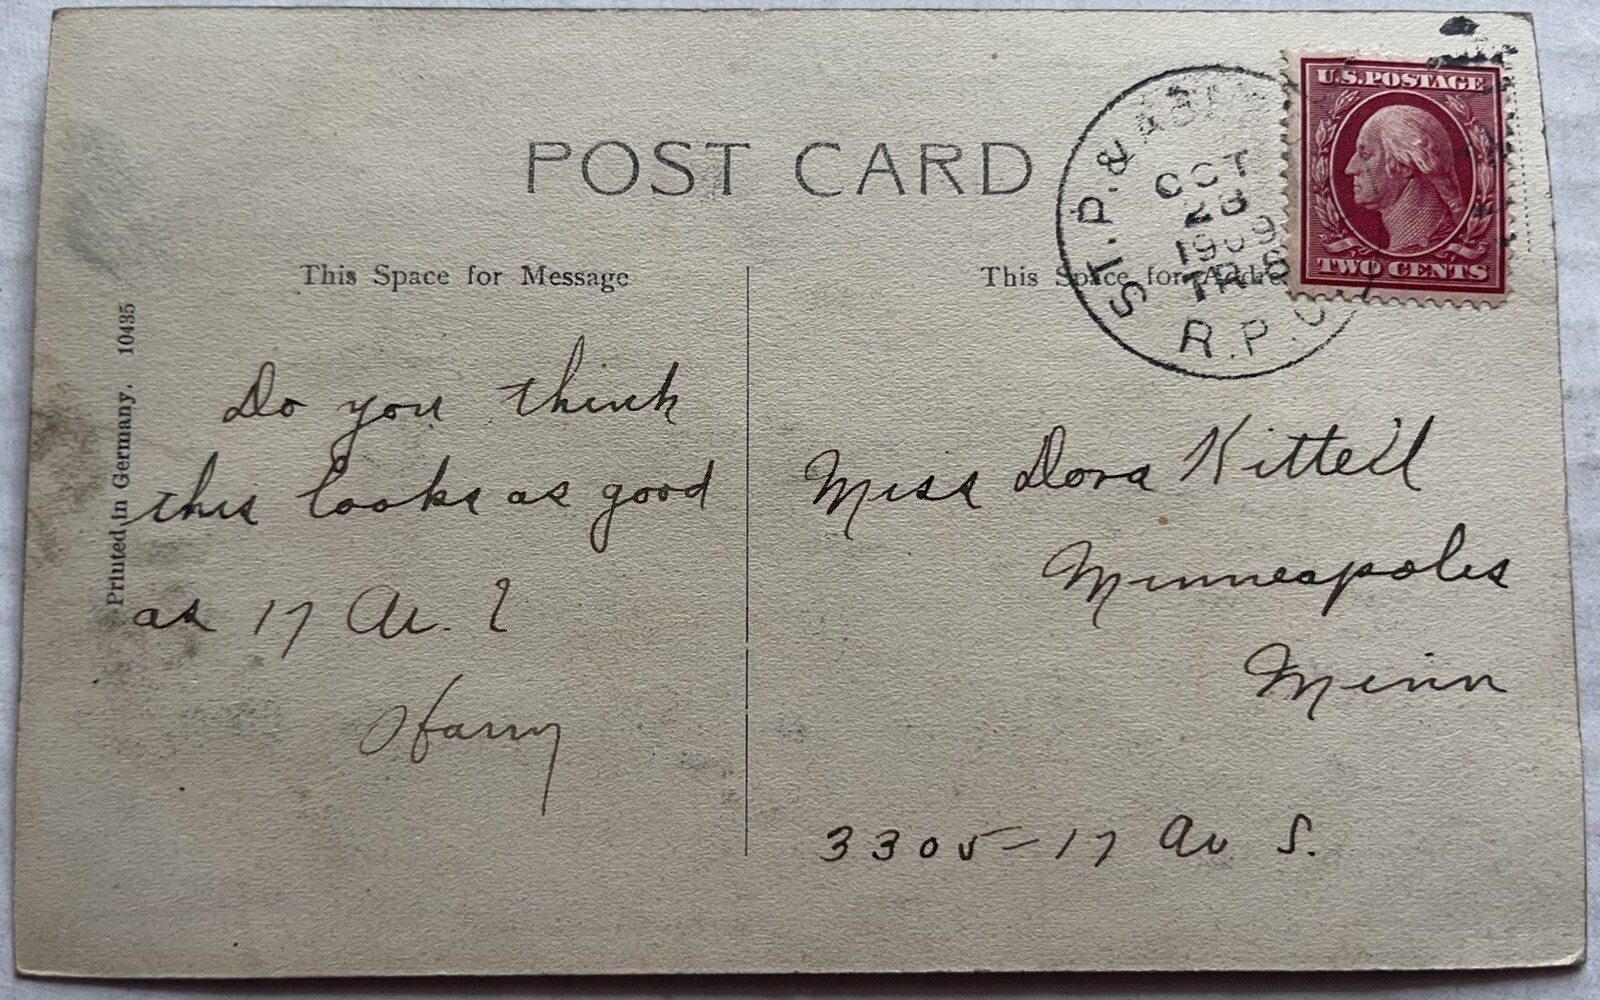 POST CARD
This Space for Message
Do you think
this looks as good
as 17 Av. ?
Harry
Printed in Germany. 10435
This Space for Addre
ST. P. &
OCT
28
1909
TR 6
R.P.O.
U.S. POSTAGE
TWO CENTS
Miss Dora Kittell
Minneapolis
Minn
3305-17 Av S.